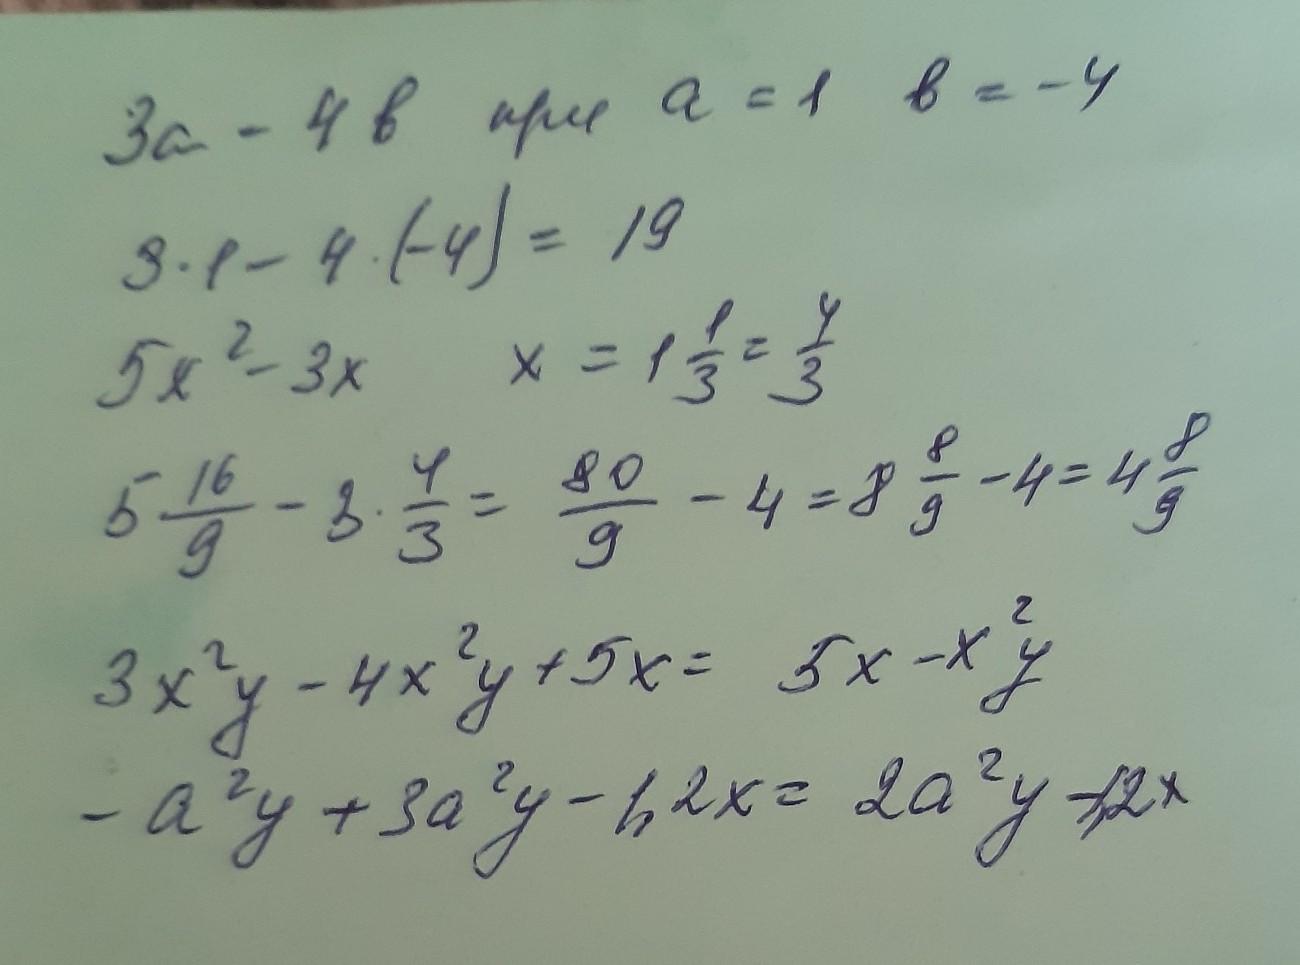 3a - 4в при a = 1 в = -4
3·1 - 4·(-4) = 19
5x² - 3x x = 1 1/3 = 4/3
5 16/9 - 3·4/3 = 80/9 - 4 = 8 8/9 - 4 = 4 8/9
3x²y - 4x²y + 5x = 5x - x²y
-a²y + 3a²y - 1,2x = 2a²y - 1,2x